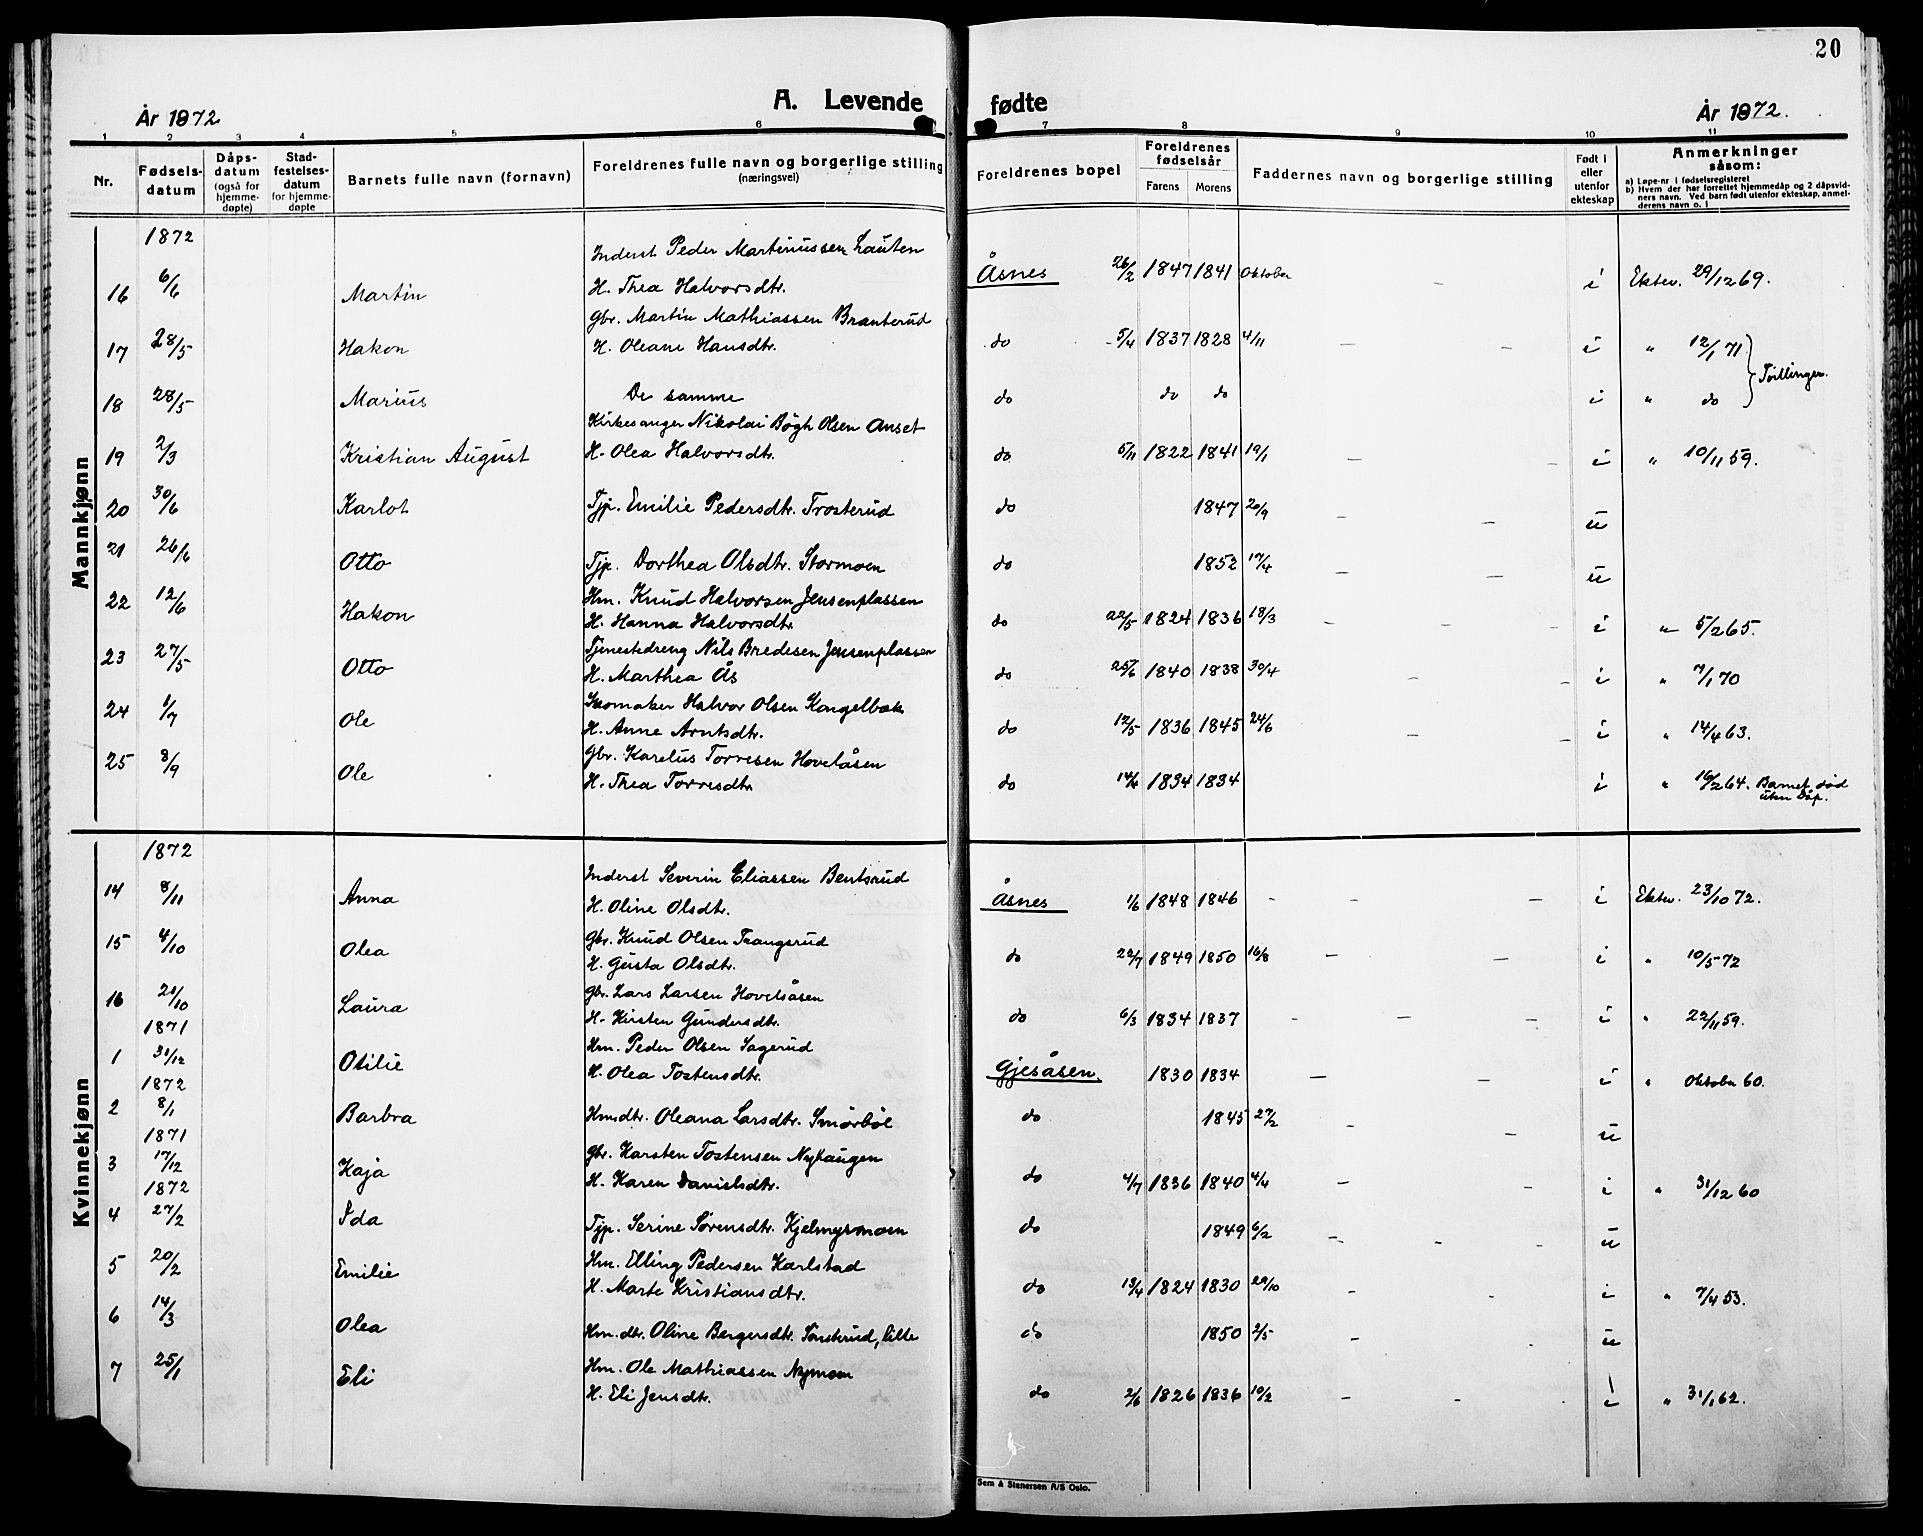 20
A. Levende fødte
År 1872
År 1872.
1 2 3 4 5 6 7 8 9 10 11
Nr.
Fødselsdatum
Dåpsdatum (også for hjemmedøpte)
Stadfestelsesdatum for hjemmedøpte
Barnets fulle navn (fornavn)
Foreldrenes fulle navn og borgerlige stilling (næringsvei)
Foreldrenes bopel
Foreldrenes fødselsår
Farens Morens
Faddernes navn og borgerlige stilling
Født i eller utenfor ekteskap
Anmerkninger såsom:
a) Løpe-nr i fødselsregisteret
b) Hvem der har forrettet hjemmedåp og 2 dåpsvidners navn. Ved barn født utenfor ekteskap, anmelderens navn o. l
Mannkjønn
1872
Inderst Peder Martinussen Lauten
16 6/6 Martin H. Thea Halvorsdtr. Åsnes 26/2 1847 1841 Oktober - i Ektev. 29/12 69.
Gbr. Martin Mathiassen Branterud
17 28/5 Hakon H. Oleane Hansdtr. do 5/4 1837 1828 4/11 - - i " 12/1 71 } Tvillinger.
18 28/5 Marius De samme do do do i " do
Kirkesanger Nikolai Bøgh Olsen Anset
19 2/3 Kristian August H. Olea Halvorsdtr. do 5/11 1822 1841 19/1 - - i " 10/11 59.
20 30/6 Karlot Tjp. Emilie Pedersdtr. Trosterud do 1847 20/9 - - u
21 26/6 Otto Tjp. Dorthea Olsdtr. Stormoen do 1852 17/4 - - u
22 12/6 Hakon Hm. Knud Halvorsen Jensenplassen
H. Hanna Halvorsdtr. do 22/5 1824 1836 18/3 - - - i " 5/2 65.
23 27/5 Otto Tjenestedreng Nils Bredesen Jensenplassen
H. Marthea Ås do 25/6 1840 1838 30/4 - - i " 7/1 70
24 1/7 Ole Skomaker Halvor Olsen Kongelbæk
H. Anne Arntsdtr. do 12/5 1836 1845 24/6 - - i " 14/4 63.
25 8/9 Ole Gbr. Karelus Torresen Hovelsåsen
H. Thea Torresdtr. do 14/4 1834 1834 i " 16/2 64. Barnet død uten Dåp.
Kvinnekjønn
1872
Inderst Severin Eliassen Bentsrud
14 8/11 Anna H. Oline Olsdtr. Åsnes 1/6 1848 1846 - - - i Ektev. 23/10 72.
15 4/10 Olea Gbr. Knud Olsen Trangsrud
H. Gusta Olsdtr. do 22/7 1849 1850 16/8 - - i " 10/5 72
16 20/10 Laura Gbr. Lars Larsen Hovelsåsen
1871 H. Kirsten Gundersdtr. do 6/3 1834 1837 - - - i " 22/11 59.
1 31/12 Otilie Hm. Peder Olsen Sagerud
1872 H. Olea Tostensdtr. Gjesåsen. 1830 1834 - - i " Oktober 60.
2 8/1 Barbra Hmsdtr. Oleana Larsdtr. Smørbøl do 1845 27/2 - - u
1871
3 17/12 Kaja Gbr. Karsten Tostensen Nyhaugen
1872 H. Karen Danielsdtr. do 4/7 1836 1840 4/4 - - i " 31/12 60
4 27/2 Ida Tjp. Serine Sørensdtr. Kjelmyrmoen do 1849 6/2 - - - u
5 20/2 Emilie Hm. Elling Pedersen Karlstad
H. Marte Kristiansdtr. do 13/4 1824 1830 29/10 - - i " 7/4 53.
6 14/3 Olea Hm.dtr. Oline Bergersdtr. Sønsterud, lille do 1850 2/5 - u
7 25/1 Eli Hm. Ole Mathiassen Nymoen
H. Eli Jensdtr. do 2/6 1826 1836 10/2 - - i " 31/1 62.
Sem & Stenersen A/S Oslo.